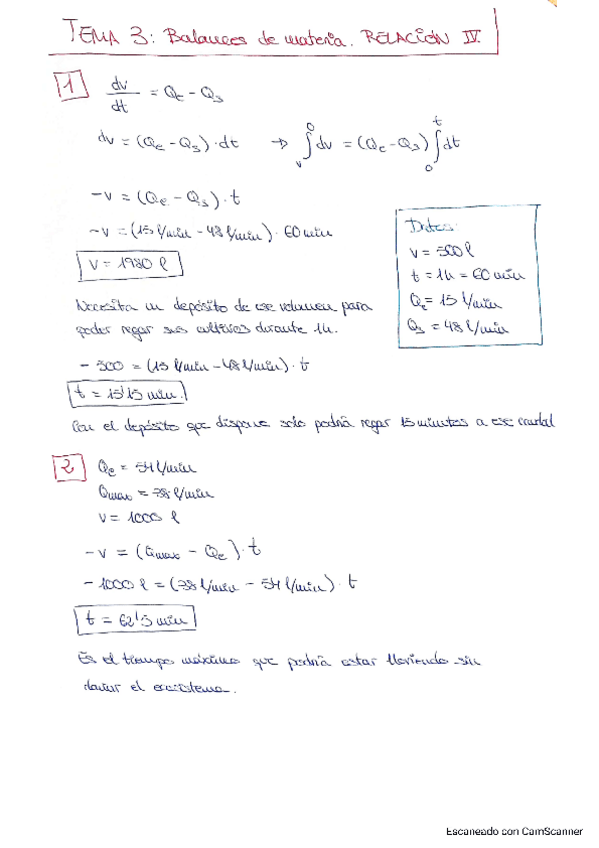 TEMA 3: Balances de materia. RELACIÓN IV.
1 dv/dt = Qe - Qs
dv = (Qe - Qs) · dt → ∫v0 dv = (Qe - Qs) ∫0t dt
-v = (Qe - Qs) · t
-v = (15 l/min - 48 l/min) · 60 min
v = 1980 l
Datos:
v = 500 l
t = 1h = 60 min
Qe = 15 l/min
Qs = 48 l/min
Necesita un depósito de ese volumen para
poder regar sus cultivos durante 1h.
- 500 = (15 l/min - 48 l/min) · t
t = 15'15 min.
Con el depósito que dispone solo podría regar 15 minutos a ese caudal
2 Qe = 54 l/min
Qmax = 38 l/min
v = 1000 l
-v = (Qmax - Qe) · t
- 1000 l = (38 l/min - 54 l/min) · t
t = 62'5 min
Es el tiempo máximo que podría estar lloviendo sin
dañar el ecosistema.
Escaneado con CamScanner